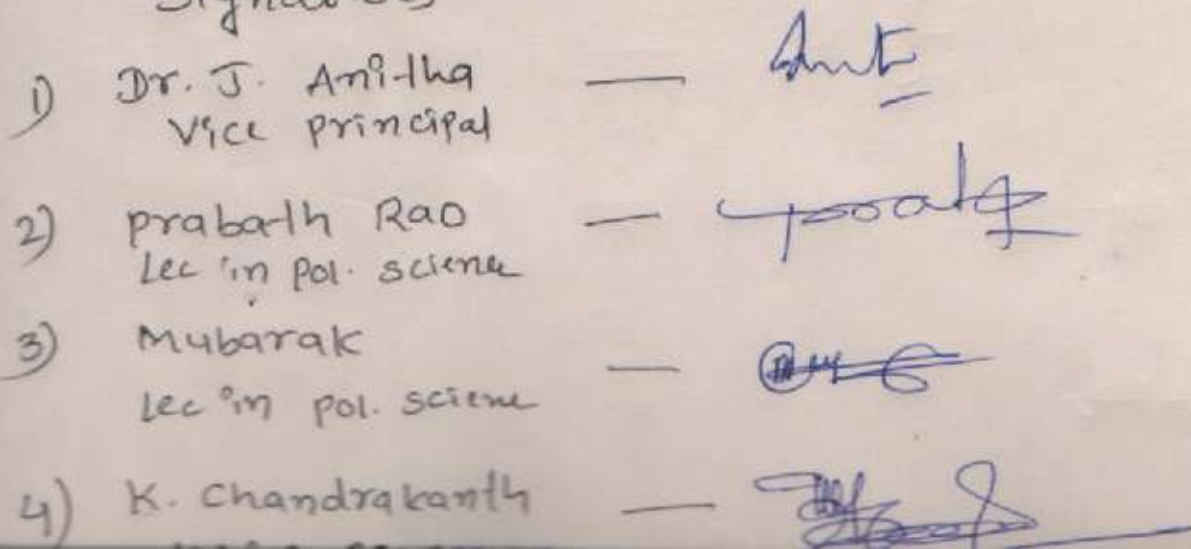 Signatures
1) Dr. J. Anitha —
Vice principal
2) prabath Rao —
Lec in pol. science
3) Mubarak —
Lec in pol. science
4) K. Chandrakanth —